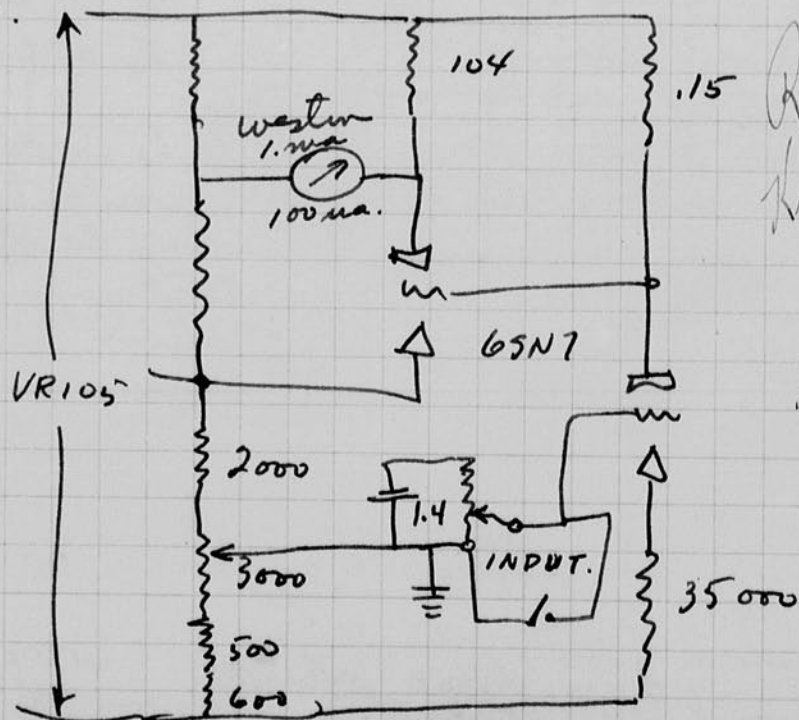 104
.15
Weston
1. ma
100 ua.
6SN7
VR105
2000
1.4
INPUT.
3000
35000
500
600